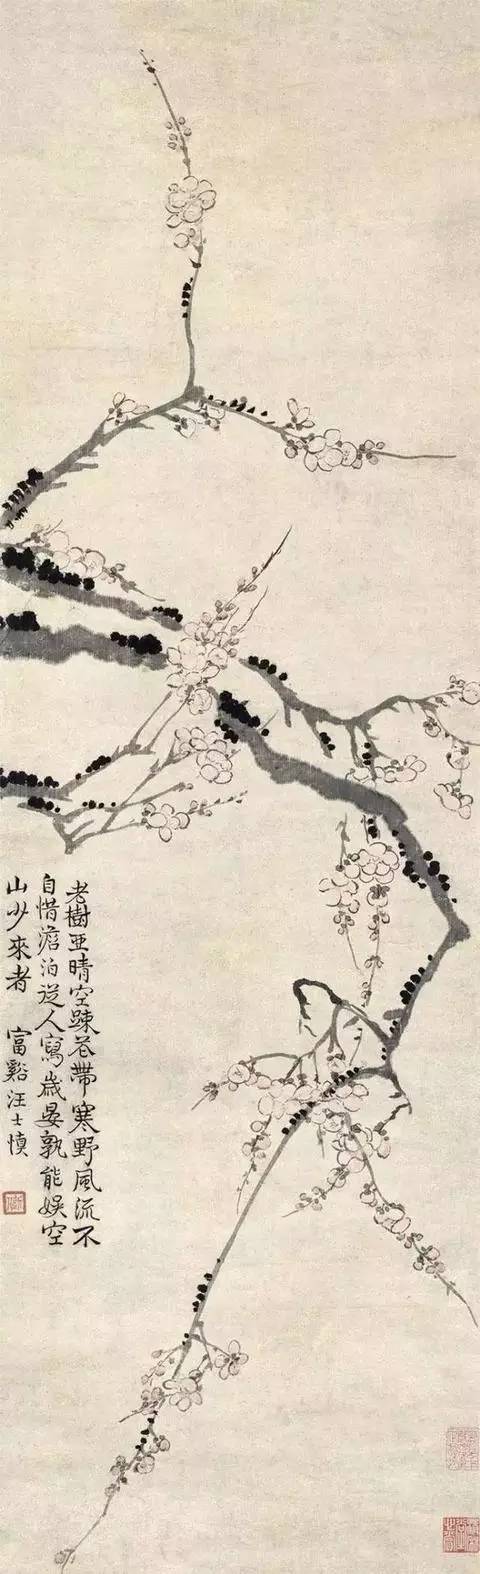 老樹亚晴空踈花帶寒野風流不
自惜澹泊从人寫歲晏孰能娛空
山少來者　富谿汪士慎